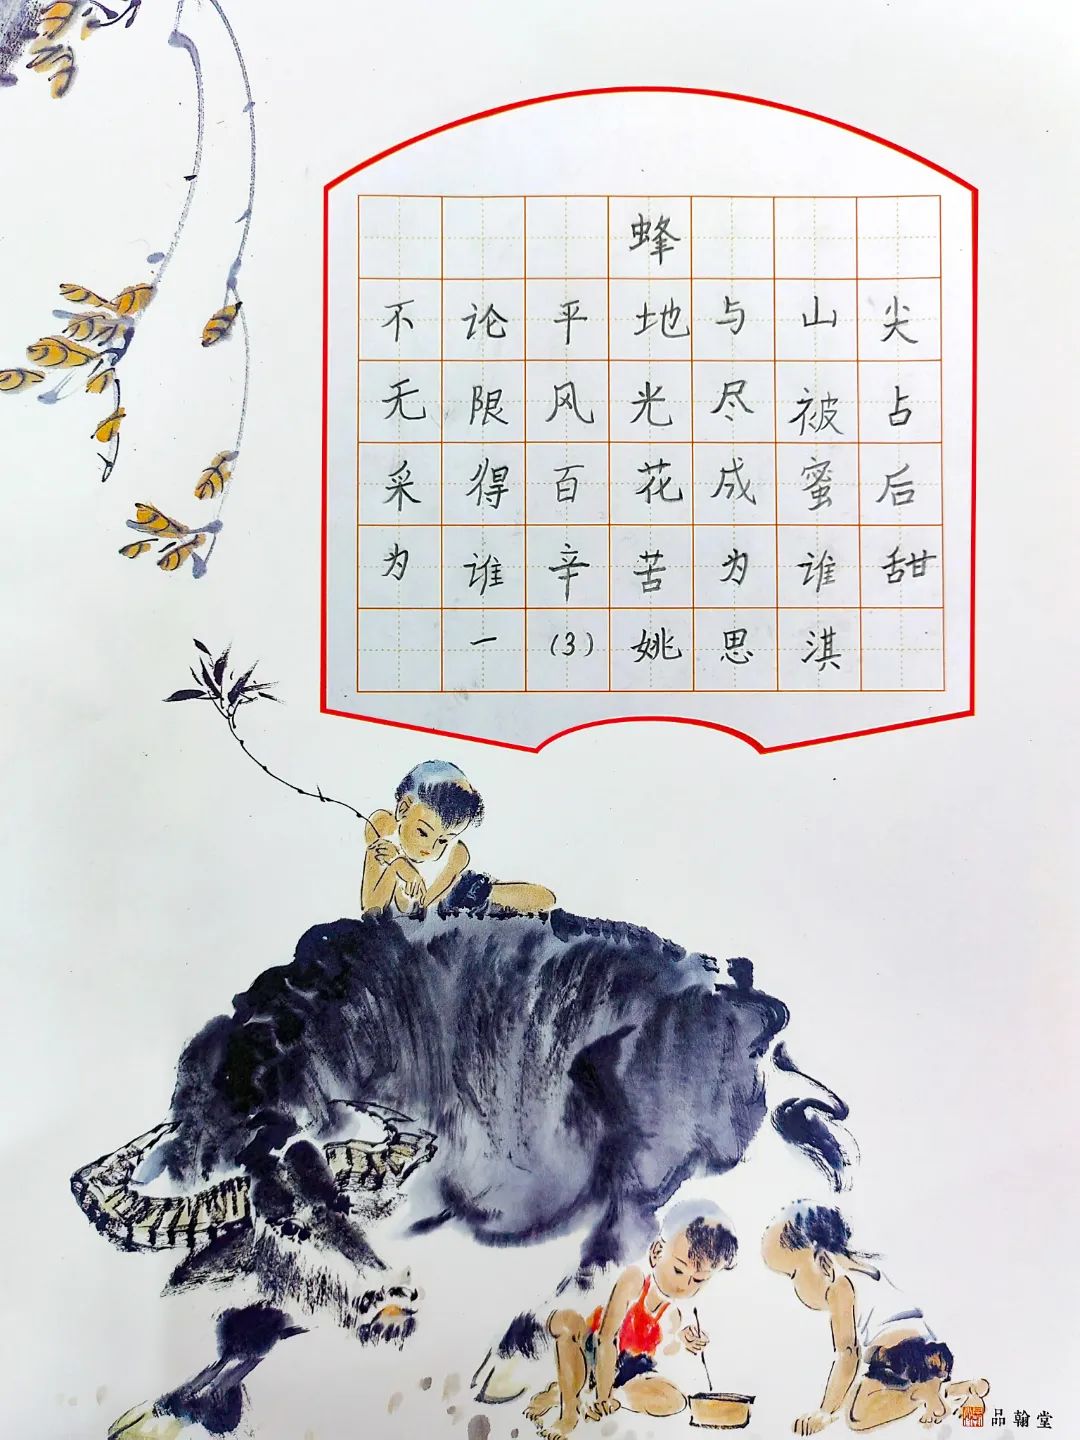 蜂
不论平地与山尖
无限风光尽被占
采得百花成蜜后
为谁辛苦为谁甜
一(3)姚思淇
品翰堂